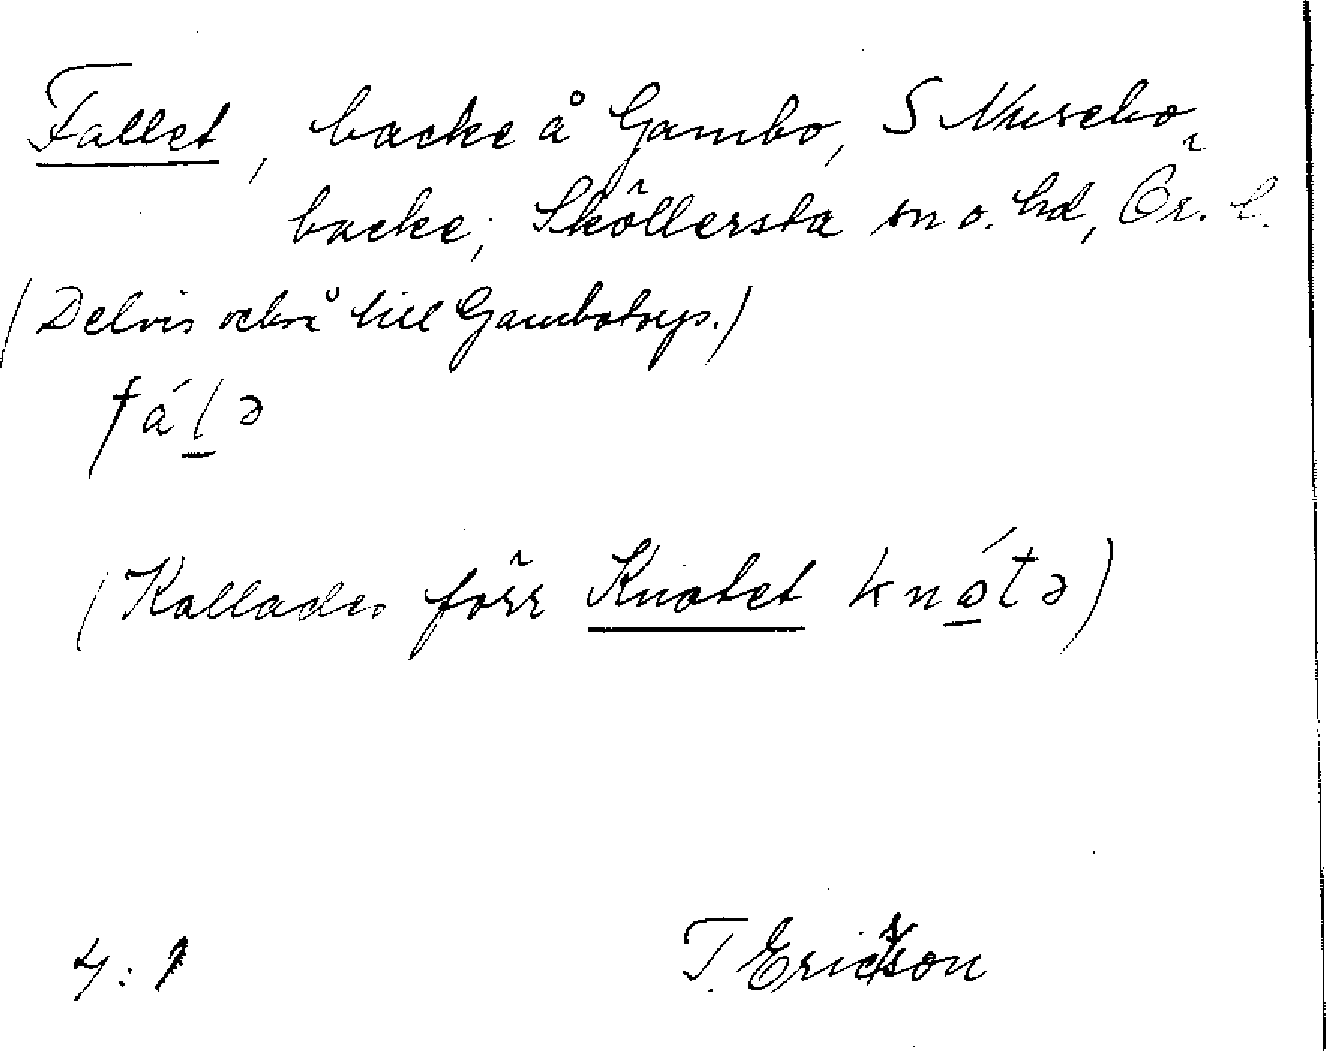 Fallet, backe å Gambo, S Musebo,
backe, Sköllersta sn o. hd, Ör. l.
(Delvis också till Gambotorp.)
fálə
(Kallades förr Knotet knótə)
4:1 T. Ericson